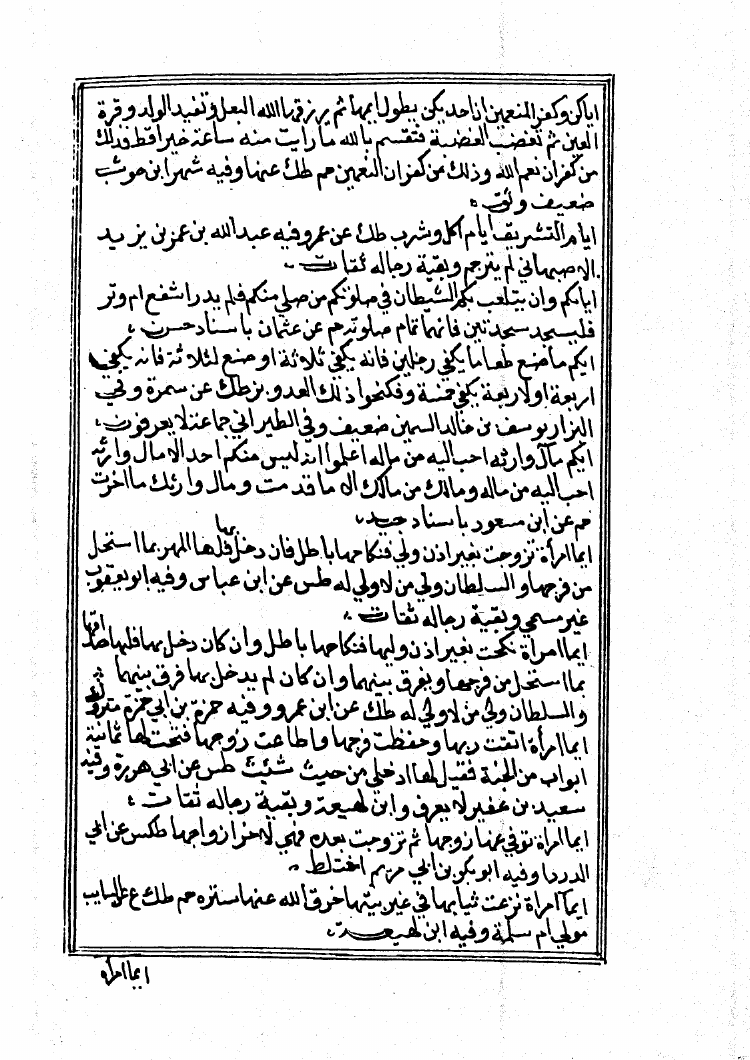 اياكن وكفر المنعمين ان احدكن يطول ايمها ثم يرزقها الله البعل وتفيد الولد وقرة
العين ثم تغضب الغضبة فتقسم بالله ما رايت منه ساعة خيرا قط فذلك
من كفران نعم الله وذلك من كفران المنعمين حم طك عنها وفيه شهر ابن حوشب
ضعيف وثق
ايام التشريق ايام اكل وشرب طك عن عمرو فيه عبد الله بن عمر بن يزيد
الاصبهاني لم يترجم وبقية رجاله ثقات
اياكم وان يتلعب بكم الشيطان في صلوتكم من صلى منكم فلم يدر اشفع ام وتر
فليسجد سجدتين فانهما تمام صلوته حم عن عثمان باسناد حسن
ايكم ما صنع طعاما يكفي رجلين فانه يكفي ثلاثة او صنع لثلاثة فانه يكفي
اربعة او لاربعة يكفي خمسة وفكنحوا ذلك العدد بز طك عن سمرة وفي
البزار يوسف بن خالد السمين ضعيف وفي الطبراني جماعة لا يعرفون
ايكم مال وارثه احب اليه من ماله اعلموا انه ليس منكم احد الا مال وارثه
احب اليه من ماله ومالك من مالك الا ما قدمت ومال وارثك ما اخرت
حم عن ابن مسعود باسناد جيد
ايما امرأة تزوجت بغير اذن ولي فنكاحها باطل فان دخل بها فلها المهر بما استحل
من فرجها والسلطان ولي من لا ولي له طس عن ابن عباس وفيه ابو يعقوب
غير مسمى وبقية رجاله ثقات
ايما امراة نكحت بغير اذن وليها فنكاحها باطل وان كان دخل بها فلها صداقها
بما استحل من فرجها ويفرق بينهما وان كان لم يدخل بها فرق بينهما
والسلطان ولي من لا ولي له طك عن ابن عمرو وفيه حمزة بن ابي حمزة متروك
ايما امرأة اتقت ربها وحفظت فرجها واطاعت زوجها فتحت لها ثمانية
ابواب من الجنة فقيل لها ادخلي من حيث شئت طس عن ابي هريرة وفيه
سعيد بن عفير لا يعرف وابن لهيعة وبقية رجاله ثقات
ايما امراة توفي عنها زوجها ثم تزوجت بعده فهي لاخر ازواجها طكس عن ابي
الدردا وفيه ابو بكر بن ابي مريم اختلط
ايما امراة نزعت ثيابها في غير بيتها خرق الله عنها ستره حم طك ع عن السايب
مولى ام سلمة وفيه ابن لهيعة
ايما امرأة